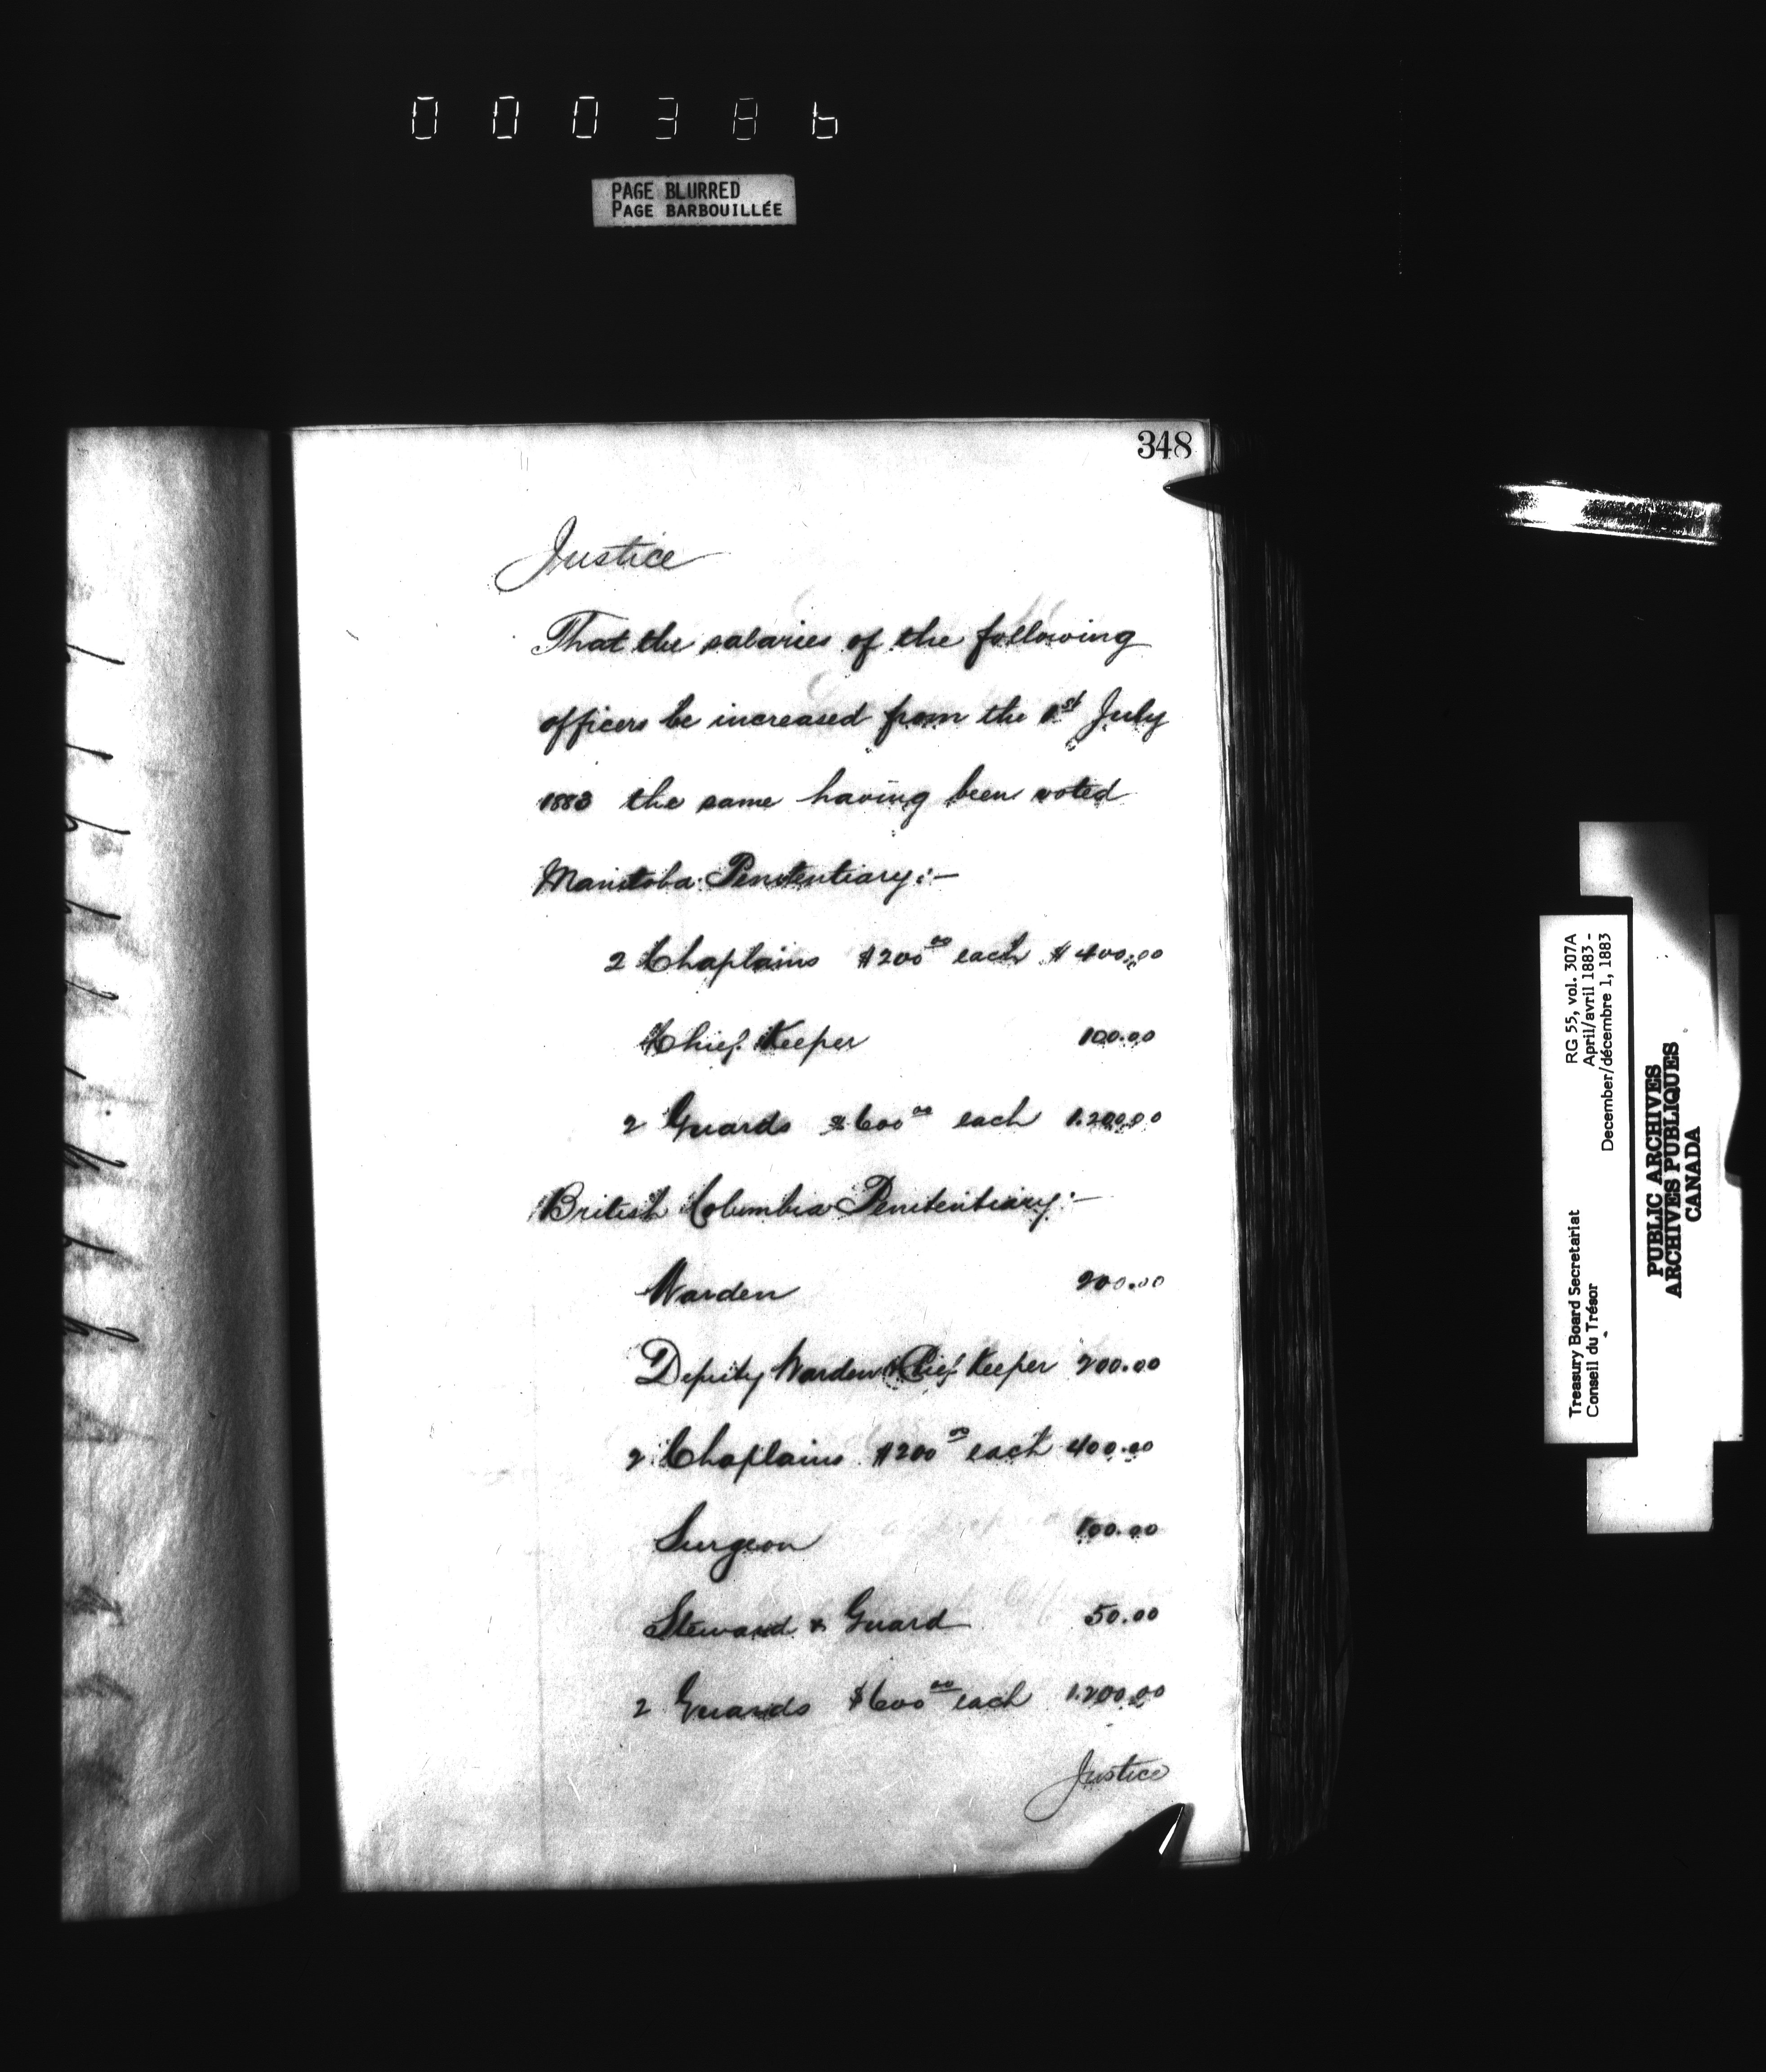 000386
PAGE BLURRED
PAGE BARBOUILLÉE
348
Justice
That the salaries of the following
officers be increased from the 1st July
1883 the same having been voted
Manitoba Penitentiary:—
2 Chaplains $200 00 each $400.00
Chief Keeper 100.00
2 Guards $600 00 each 1.200.00
British Columbia Penitentiary:—
Warden 200.00
Deputy Warden & Chief Keeper 200.00
2 Chaplains $200 00 each 400.00
Surgeon 100.00
Steward & Guard 50.00
2 Guards $600 00 each 1.200.00
Justice
Treasury Board Secretariat RG 55, vol. 307A
Conseil du Trésor April/avril 1883 -
December/décembre 1, 1883
PUBLIC ARCHIVES
ARCHIVES PUBLIQUES
CANADA